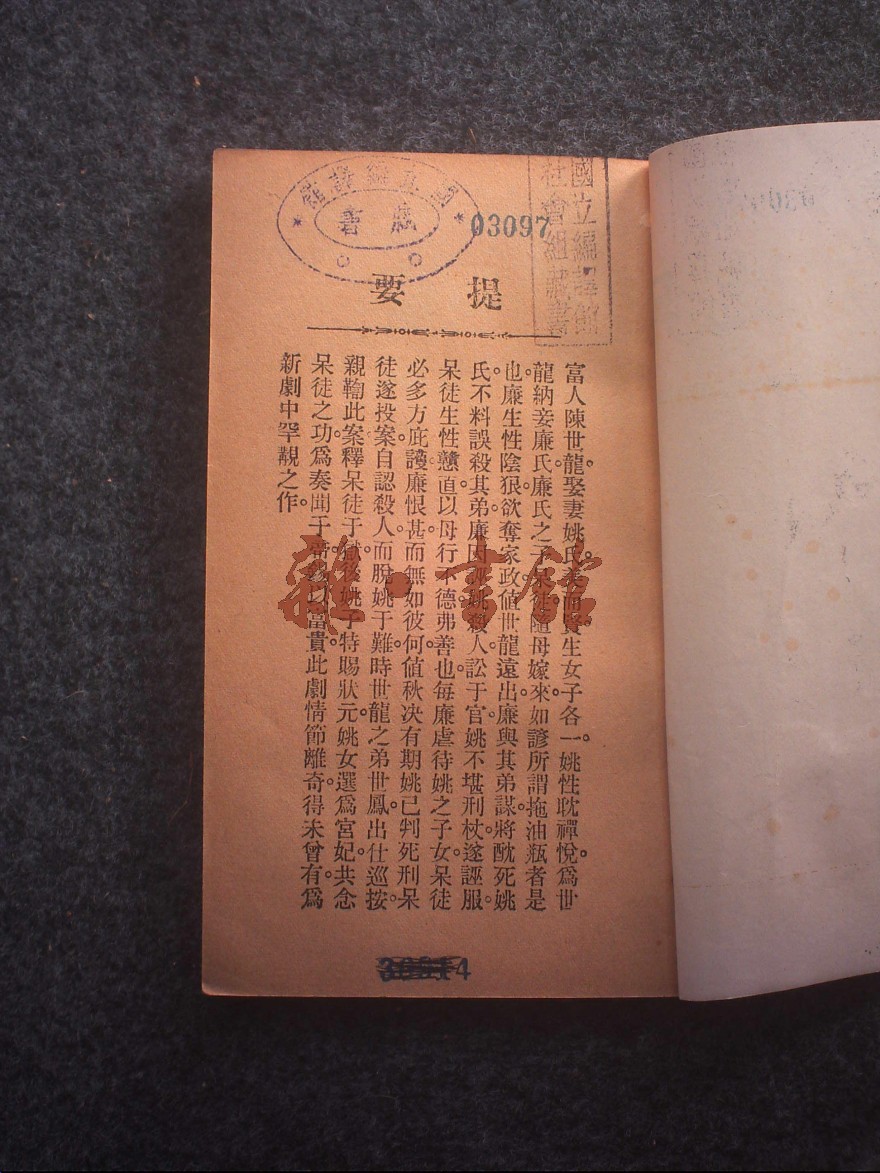 國立編譯館
藏書
03097
國立編譯館
社會組藏書
提要
富人陳世龍。娶妻姚氏。美而賢。生女子各一。姚性耽禪悅。爲世
龍納妾廉氏。廉氏之子呆徒。隨母嫁來。如諺所謂拖油瓶者是
也。廉生性陰狠。欲奪家政。値世龍遠出。廉與其弟謀。將酖死姚
氏。不料誤殺其弟。廉因誣姚殺人。訟于官。姚不堪刑杖。遂誣服。
呆徒生性戇直。以母行不德。弗善也。每廉虐待姚之子女。呆徒
必多方庇護。廉恨甚。而無如彼何。値秋決有期。姚已判死刑。呆
徒遂投案自認殺人。而脫姚于難。時世龍之弟世鳳。出仕巡按。
親鞫此案。釋呆徒于獄。後姚子特賜狀元。姚女選爲宮妃。共念
呆徒之功。爲奏聞于帝。錫以富貴。此劇情節離奇。得未曾有。爲
新劇中罕覯之作。
雜·書館